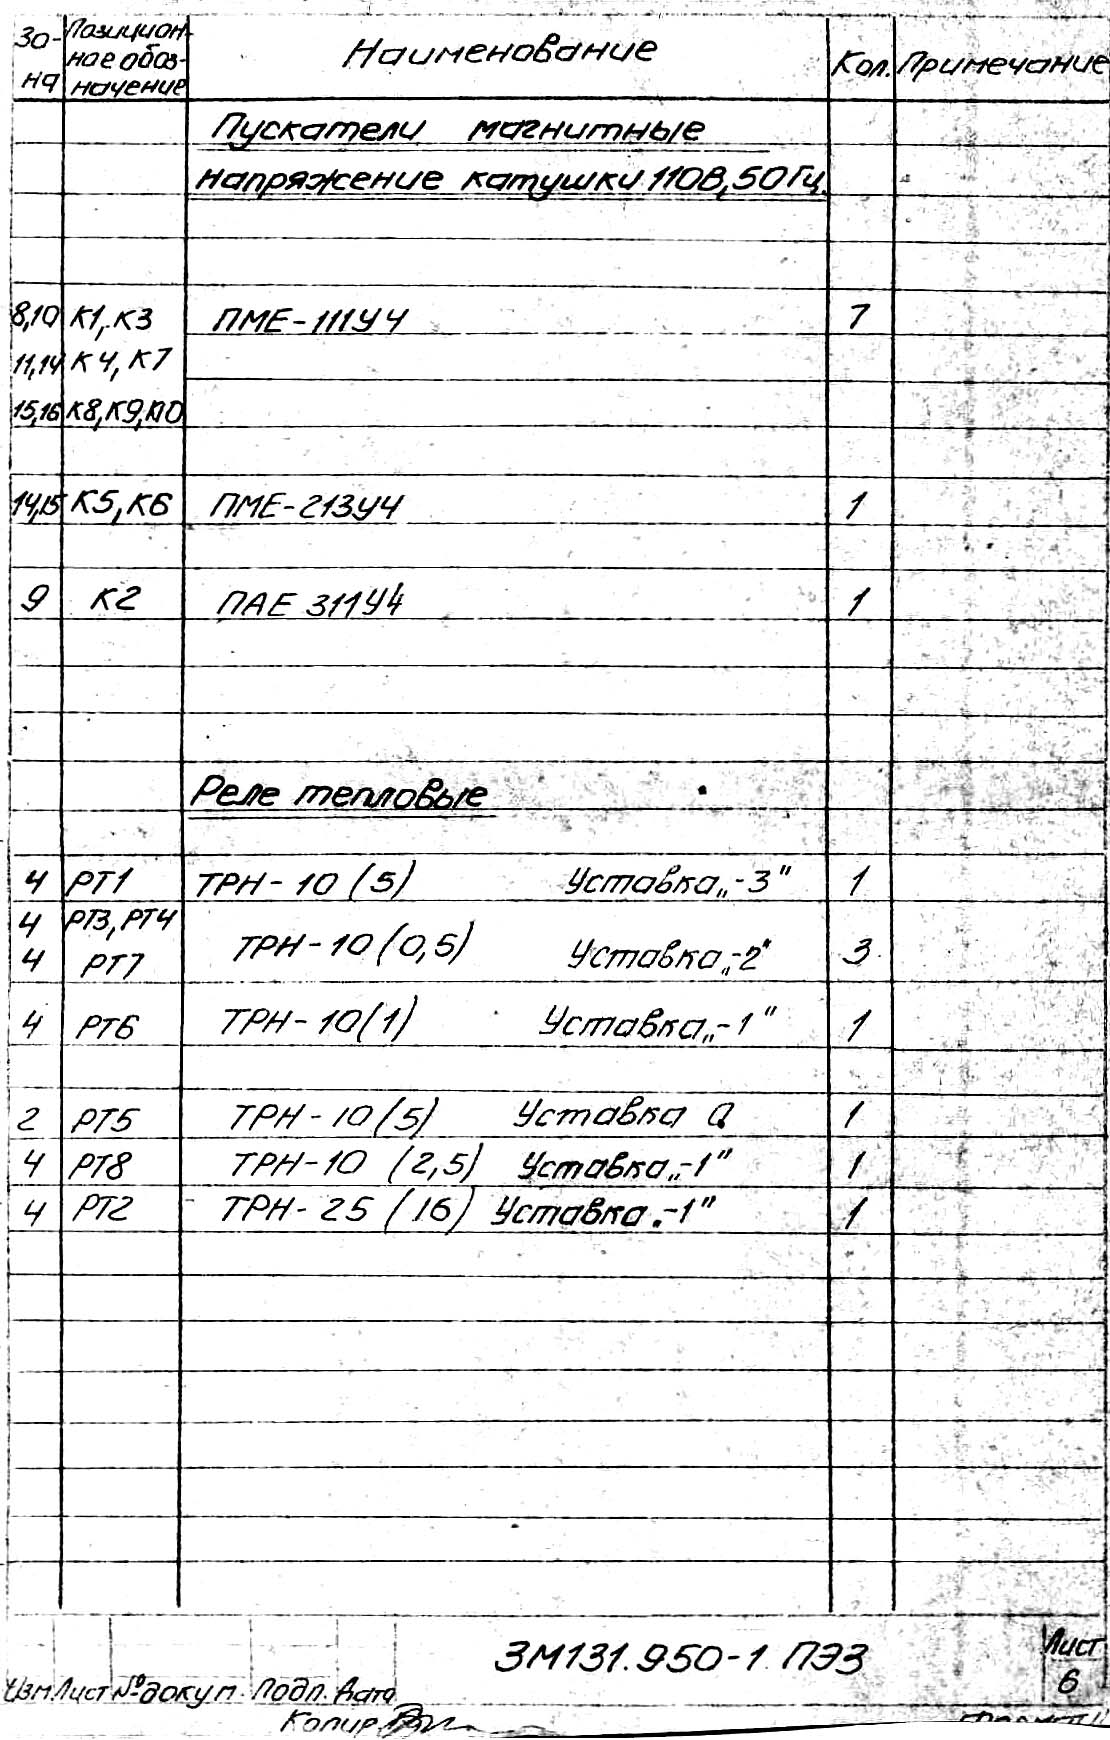 Зо-
на
Позицион-
ное обоз-
начение
Наименование
Кол.
Примечание
Пускатели магнитные
напряжение катушки 110В, 50Гц.
8,10 К1, К3 ПМЕ-111У4 7
11,14 К4, К7
15,16 К8, К9, К10
14,15 К5, К6 ПМЕ-213У4 1
9 К2 ПАЕ 311У4 1
Реле тепловые
4 РТ1 ТРН-10 (5) Уставка „-3" 1
4 РТ3, РТ4
4 РТ7 ТРН-10 (0,5) Уставка „-2" 3
4 РТ6 ТРН-10(1) Уставка „-1" 1
2 РТ5 ТРН-10(5) Уставка 0 1
4 РТ8 ТРН-10 (2,5) Уставка „-1" 1
4 РТ2 ТРН-25 (16) Уставка „-1" 1
3М131.950-1 ПЭ3
Лист
6
Изм Лист № докум. Подп. Дата
Копир.
Формат 11